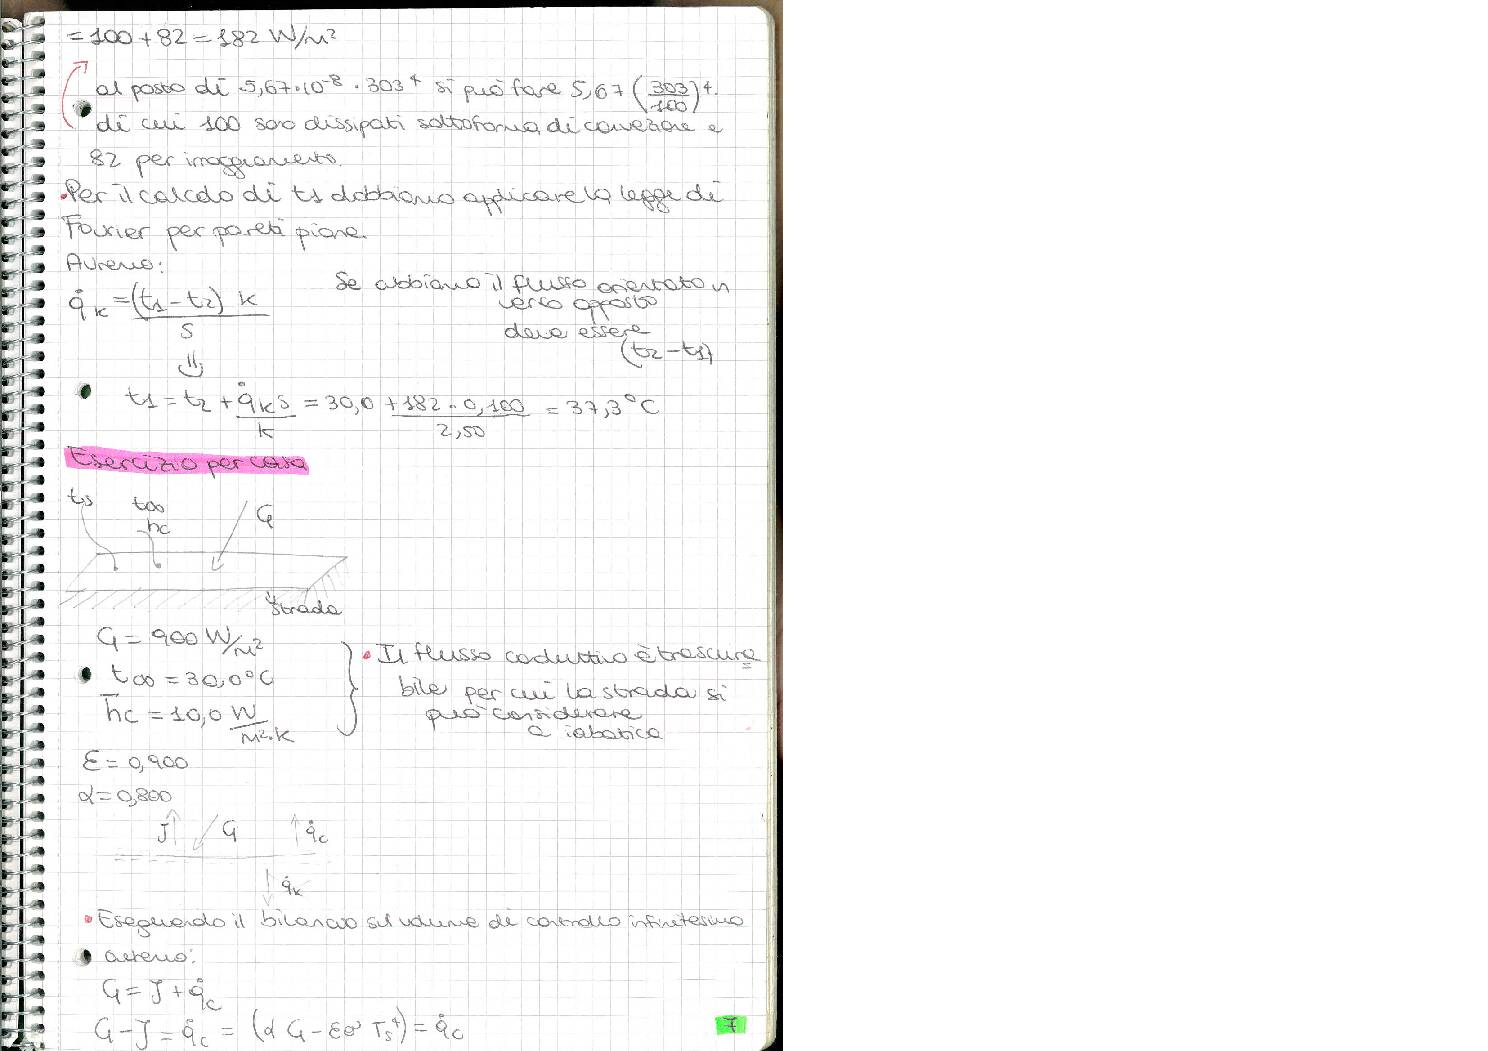 = 100 + 82 = 182 W/m²
al posto di 5,67·10⁻⁸ · 303⁴ si può fare 5,67 (303/100)⁴.
di cui 100 sono dissipati sottoforma di convezione e
82 per irraggiamento.
• Per il calcolo di t1 dobbiamo applicare la legge di
Fourier per pareti piane.
Avremo:
q̇k = (t1 - t2) k / s
Se abbiamo il flusso orientato in
verso opposto
deve essere
(t2 - t1)
⇓
t1 = t2 + q̇k s / k = 30,0 + 182 · 0,100 / 2,50 = 37,3 °C
Esercizio per casa
ts
t∞
hc
G
strada
G = 900 W/m²
t∞ = 30,0 °C
h̄c = 10,0 W / m²·K
• Il flusso conduttivo è trascura
bile per cui la strada si
può considerare
adiabatica
ε = 0,900
α = 0,800
J G q̇c
q̇k
• Eseguendo il bilancio sul volume di controllo infinitesimo
avremo:
G = J + q̇c
G - J = q̇c = (α G - εσ Ts⁴) = q̇c
7